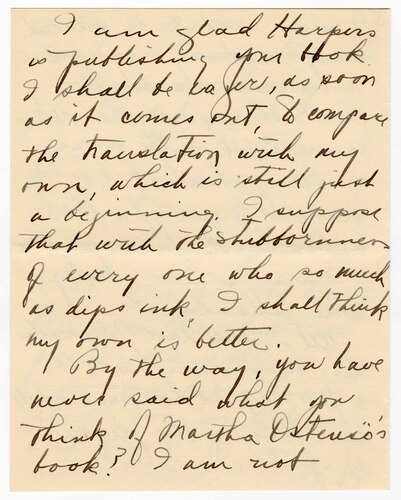 I am glad Harpers
is publishing your book.
I shall be eager, as soon
as it comes out, to compare
the translation with my
own, which is still just
a beginning. I suppose
that with the stubbornness
of every one who so much
as dips ink, I shall think
my own is better.
By the way, you have
never said what you
think of Martha Ostensö's
book? I am not